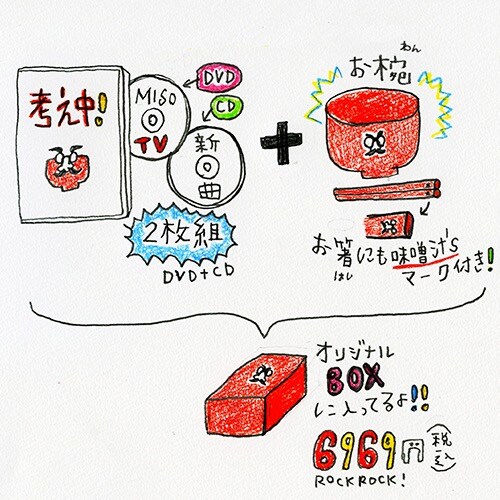 考え中!
MISO
TV
DVD
CD
新
曲
2枚組
DVD+CD
+
わん
お椀
お箸にも味噌汁's
はし
マーク付き!
オリジナル
BOX
に入ってるよ!!
6969円(税込)
ROCKROCK!